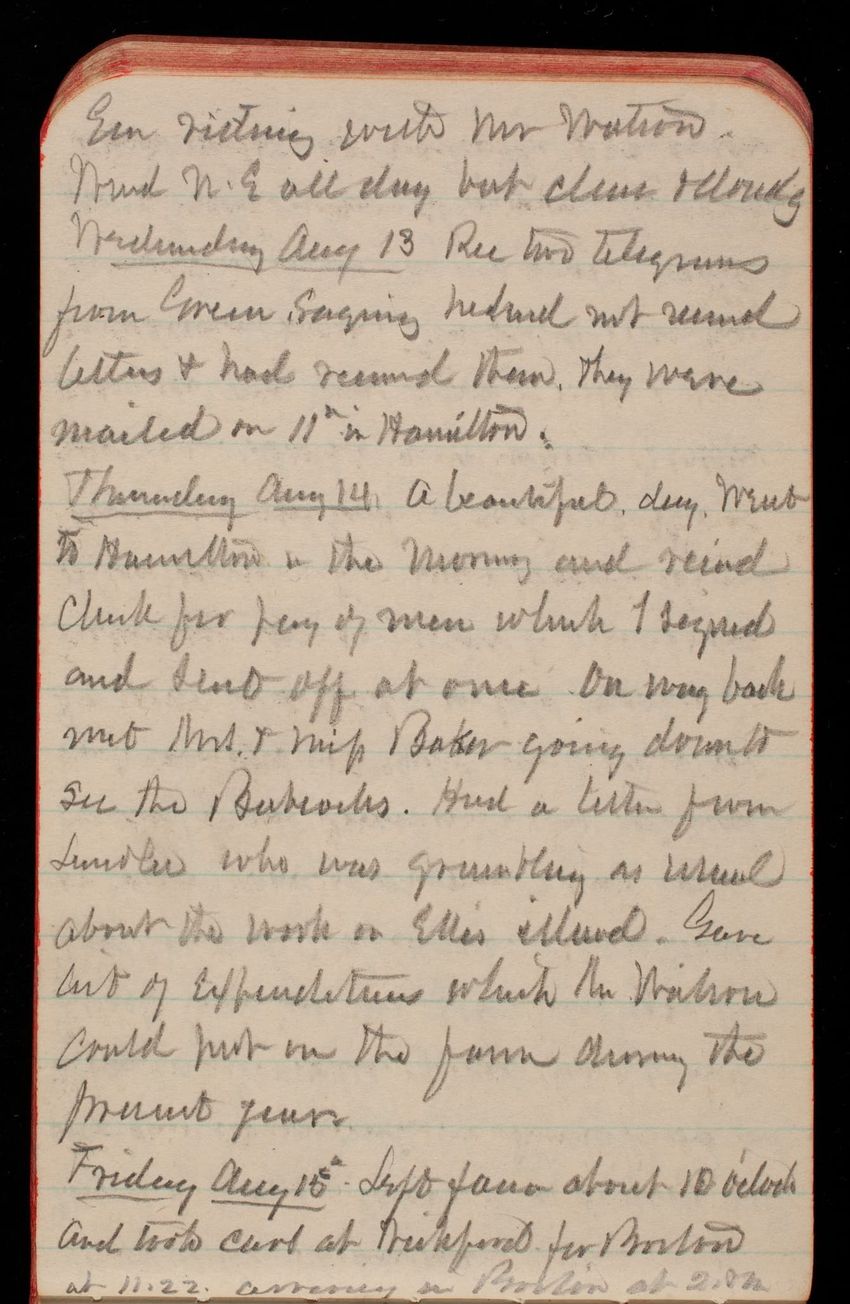 Eve visiting with Mr Watson.
Wind N.E all day but clear & cloudy
Wednesday Aug 13 Rec two telegrams
from Green, Saying he had not received
letters & had received them. They were
mailed on 11th in Hamilton.
Thursday Aug 14. A beautiful day. Went
to Hamilton in the morning and recivd
Check for pay of men which I signed
and sent off at once On way back
met Mrs. & Miss Baker going down to
see the Babcocks. Had a letter from
who was grumbling as usual
about the work on Ellis island. Gave
list of Expenditures which Mr Watson
could put on the farm during the
present year.
Friday Aug 15th. Left farm about 10 oclock
and took cars at Wickford for Boston
at 11.22. arriving in Boston at